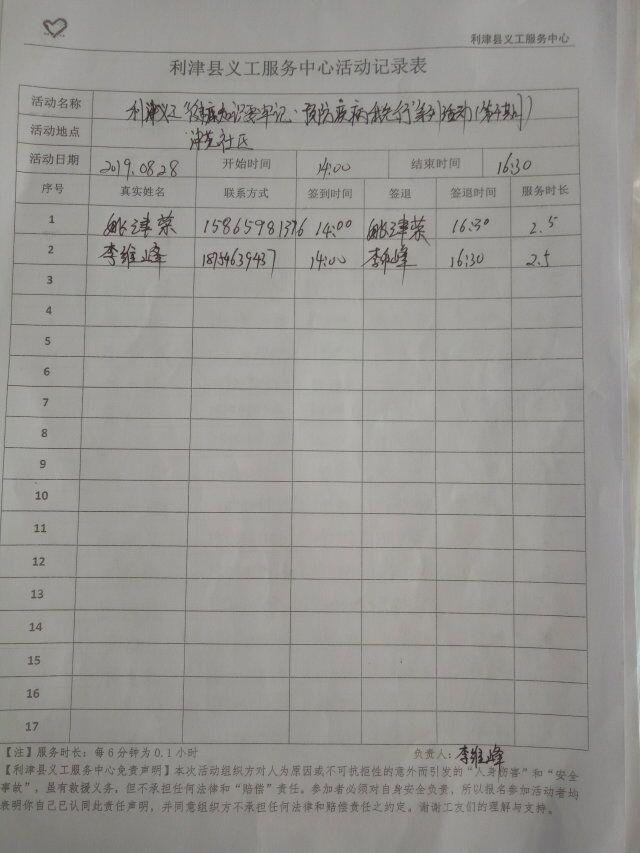 利津县义工服务中心
利津县义工服务中心活动记录表
活动名称 利津义工“健康知识要牢记·预防疾病我先行”系列活动(第 期)
活动地点 津苑社区
活动日期 2019.08.28 开始时间 14:00 结束时间 16:30
序号 真实姓名 联系方式 签到时间 签退 签退时间 服务时长
1 津荣 15865981376 14:00 津荣 16:30 2.5
2 李维峰 18754639437 14:00 李维峰 16:30 2.5
3
4
5
6
7
8
9
10
11
12
13
14
15
16
17
【注】服务时长:每6分钟为0.1小时 负责人:李维峰
【利津县义工服务中心免责声明】本次活动组织方对人为原因或不可抗拒性的意外而引发的“人身伤害”和“安全
事故”,虽有救援义务,但不承担任何法律和“赔偿”责任。参加者必须对自身安全负责,所以报名参加活动者均
表明你自己已认同此责任声明,并同意组织方不承担任何法律和赔偿责任之约定。谢谢工友们的理解与支持。